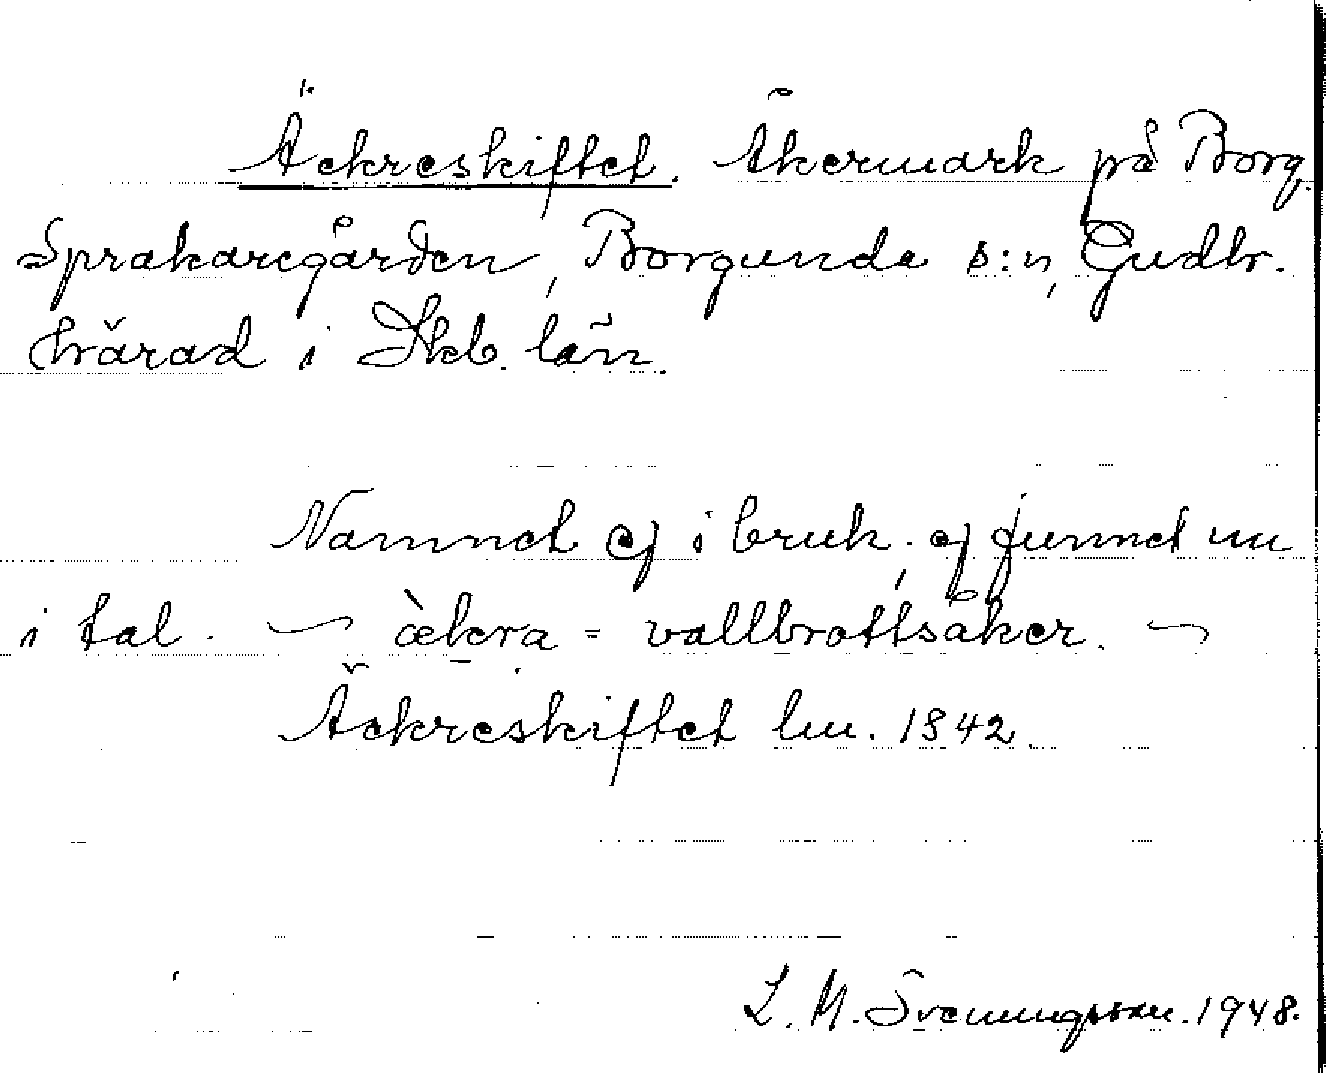 Äckreskiftet. Åkermark på Borg.
Sprakaregården, Borgunda s:n, Gudhr.
härad i Skb. län.
Namnet ej i bruk, ej funnet nu
i tal. — æ̀kra = vallbrottsåker. —
Äckreskiftet lm. 1842.
L. M. Svenungsson. 1948.